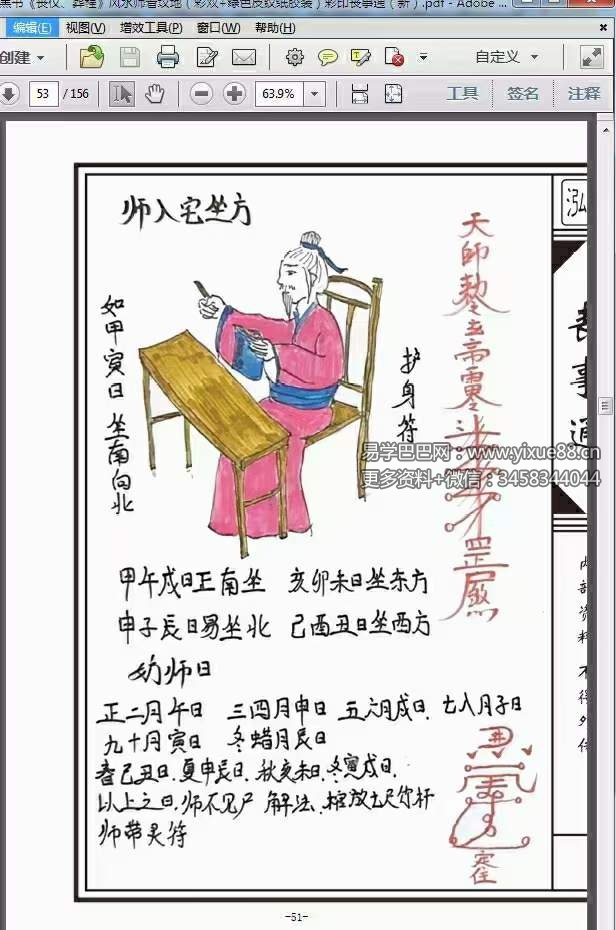 黑书《丧仪、葬程》风水师看坟地（彩双+绿色皮纹纸胶装）彩印丧事通（新）.pdf - Adobe ...
编辑(E) 视图(V) 增效工具(P) 窗口(W) 帮助(H)
创建 自定义
53 / 156 63.9% 工具 签名 注释
师入宅坐方
如甲寅日坐南向北
护身符
天師勅
罡
易学巴巴网：www.yixue88.cn
更多资料+微信：3458344044
甲午戌日正南坐 亥卯未日坐东方
申子辰日易坐北 己酉丑日坐西方
妨师日
正二月午日 三四月申日 五六月戌日、七八月子日
九十月寅日 冬蜡月辰日
春己丑日、夏申辰日、秋亥未日、冬寅戌日、
以上之日、师不见尸 解法、棺放
师带灵符
定住
泓
丧事通
内部资料 不得外传
-51-